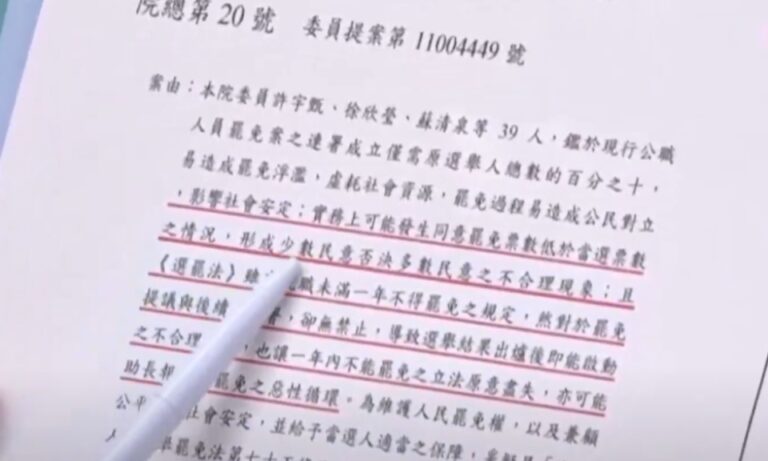 院總第20號 委員提案第11004449號
案由：本院委員許宇甄、徐欣瑩、蘇清泉等 39 人，鑑於現行公職
人員罷免案之連署成立僅需原選舉人總數的百分之十，
易造成罷免浮濫，虛耗社會資源，罷免過程易造成公民對立
，影響社會安定；實務上可能發生同意罷免票數低於當選票數
之情況，形成少數民意否決多數民意之不合理現象；且
《選罷法》雖 職未滿一年不得罷免之規定，然對於罷免
提議與後續 ，卻無禁止，導致選舉結果出爐後即能啟動
之不合理 ，也讓一年內不能罷免之立法原意盡失，亦可能
助長 罷免之惡性循環。為維護人民罷免權，以及兼顧
公平 社會安定，並給予當選人適當之保障，爰擬具「
罷免法第七十